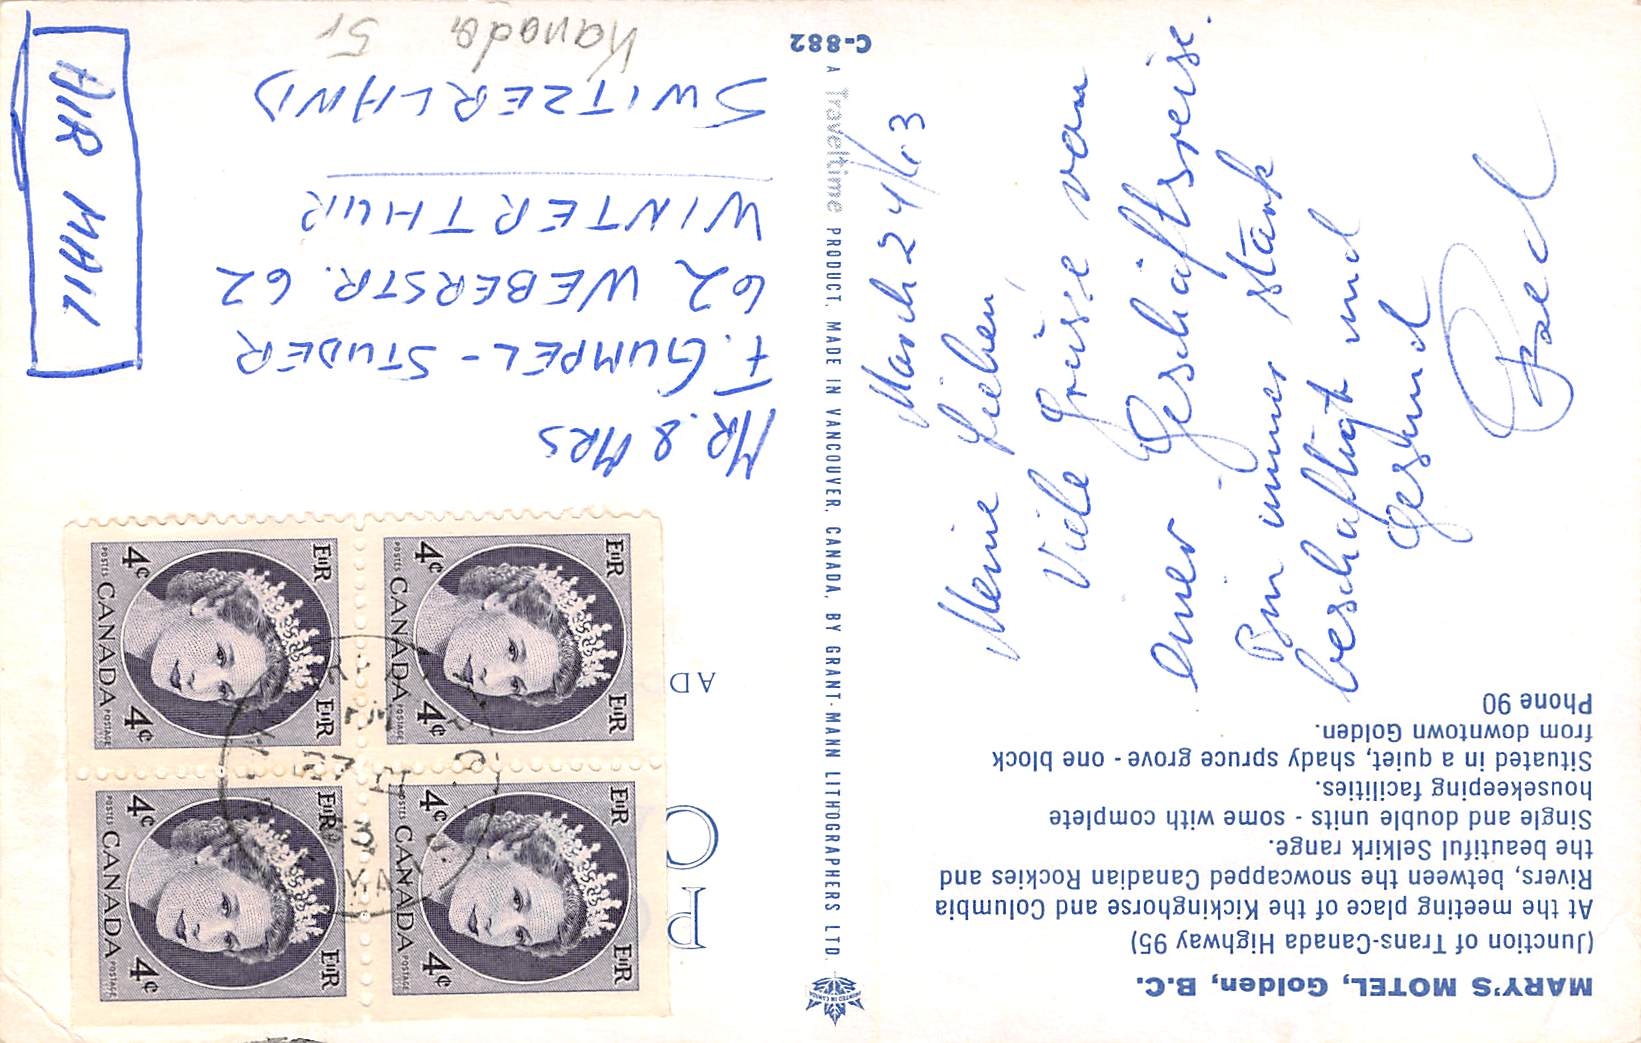 MARY'S MOTEL, Golden, B.C.
(Junction of Trans-Canada Highway 95)
At the meeting place of the Kickinghorse and Columbia
Rivers, between the snowcapped Canadian Rockies and
the beautiful Selkirk range.
Single and double units - some with complete
housekeeping facilities.
Situated in a quiet, shady spruce grove - one block
from downtown Golden.
Phone 90
March 24/63
Meine Lieben,
Viele Grüsse von
einer Geschäftsreise.
Bin immer stark
beschäftigt und
gesund
C-882
A Traveltime PRODUCT, MADE IN VANCOUVER, CANADA, BY GRANT-MANN LITHOGRAPHERS LTD.
PRINTED IN CANADA
PO
AD
EIIR
4¢ 4¢
POSTES CANADA POSTAGE
EIIR
EIIR
4¢ 4¢
POSTES CANADA POSTAGE
EIIR
EIIR
4¢ 4¢
POSTES CANADA POSTAGE
EIIR
EIIR
4¢ 4¢
POSTES CANADA POSTAGE
EIIR
PM
27 III
MR. & MRS
F. GUMPEL-STUDER
62 WEBERSTR. 62
WINTERTHUR
SWITZERLAND
AIR MAIL
Kanada